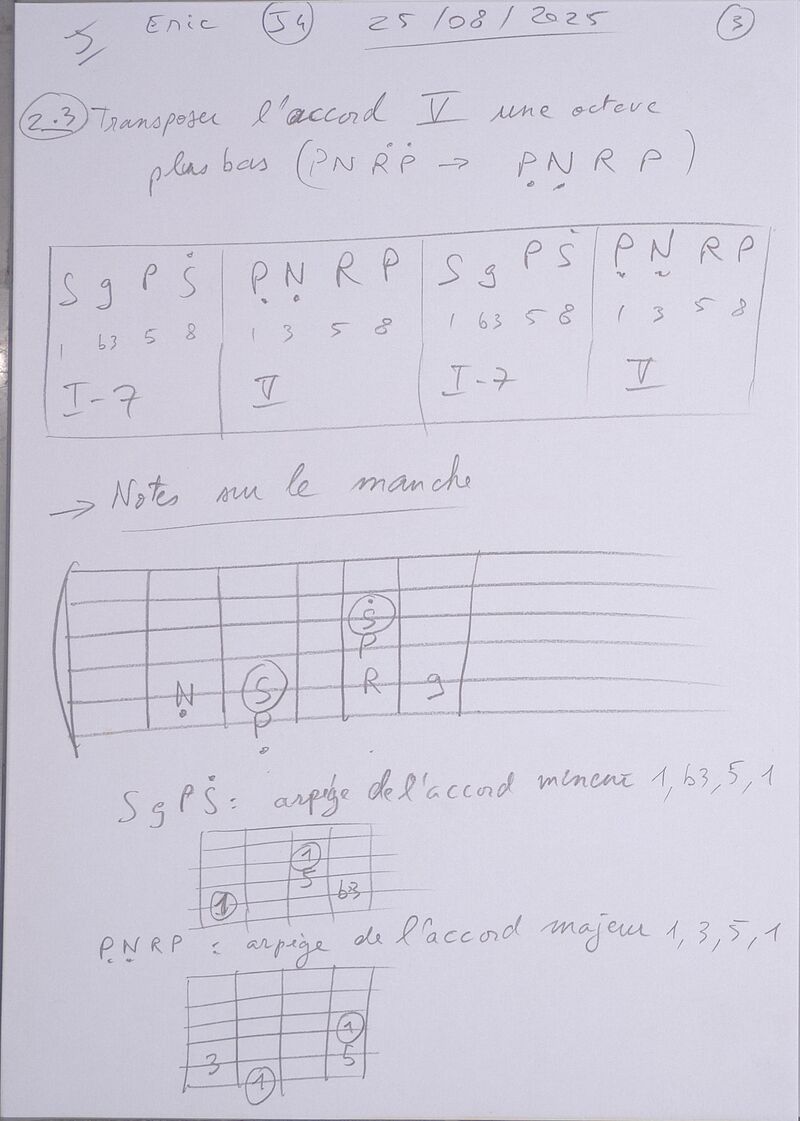 5/ Eric J4 25/08/2025 3
2.3 Transposer l'accord V une octave
plus bas (P N Ṙ Ṗ → P̣ Ṇ R P)
S g P Ṡ P̣ Ṇ R P S g P Ṡ P̣ Ṇ R P
1 b3 5 8 1 3 5 8 1 b3 5 8 1 3 5 8
I-7 V I-7 V
→ Notes sur le manche
Ṡ
P
Ṇ S R g
P̣
S g P Ṡ : arpège de l'accord mineur 1, b3, 5, 1
1
5
1 b3
P̣ Ṇ R P : arpège de l'accord majeur 1, 3, 5, 1
1
3 5
1